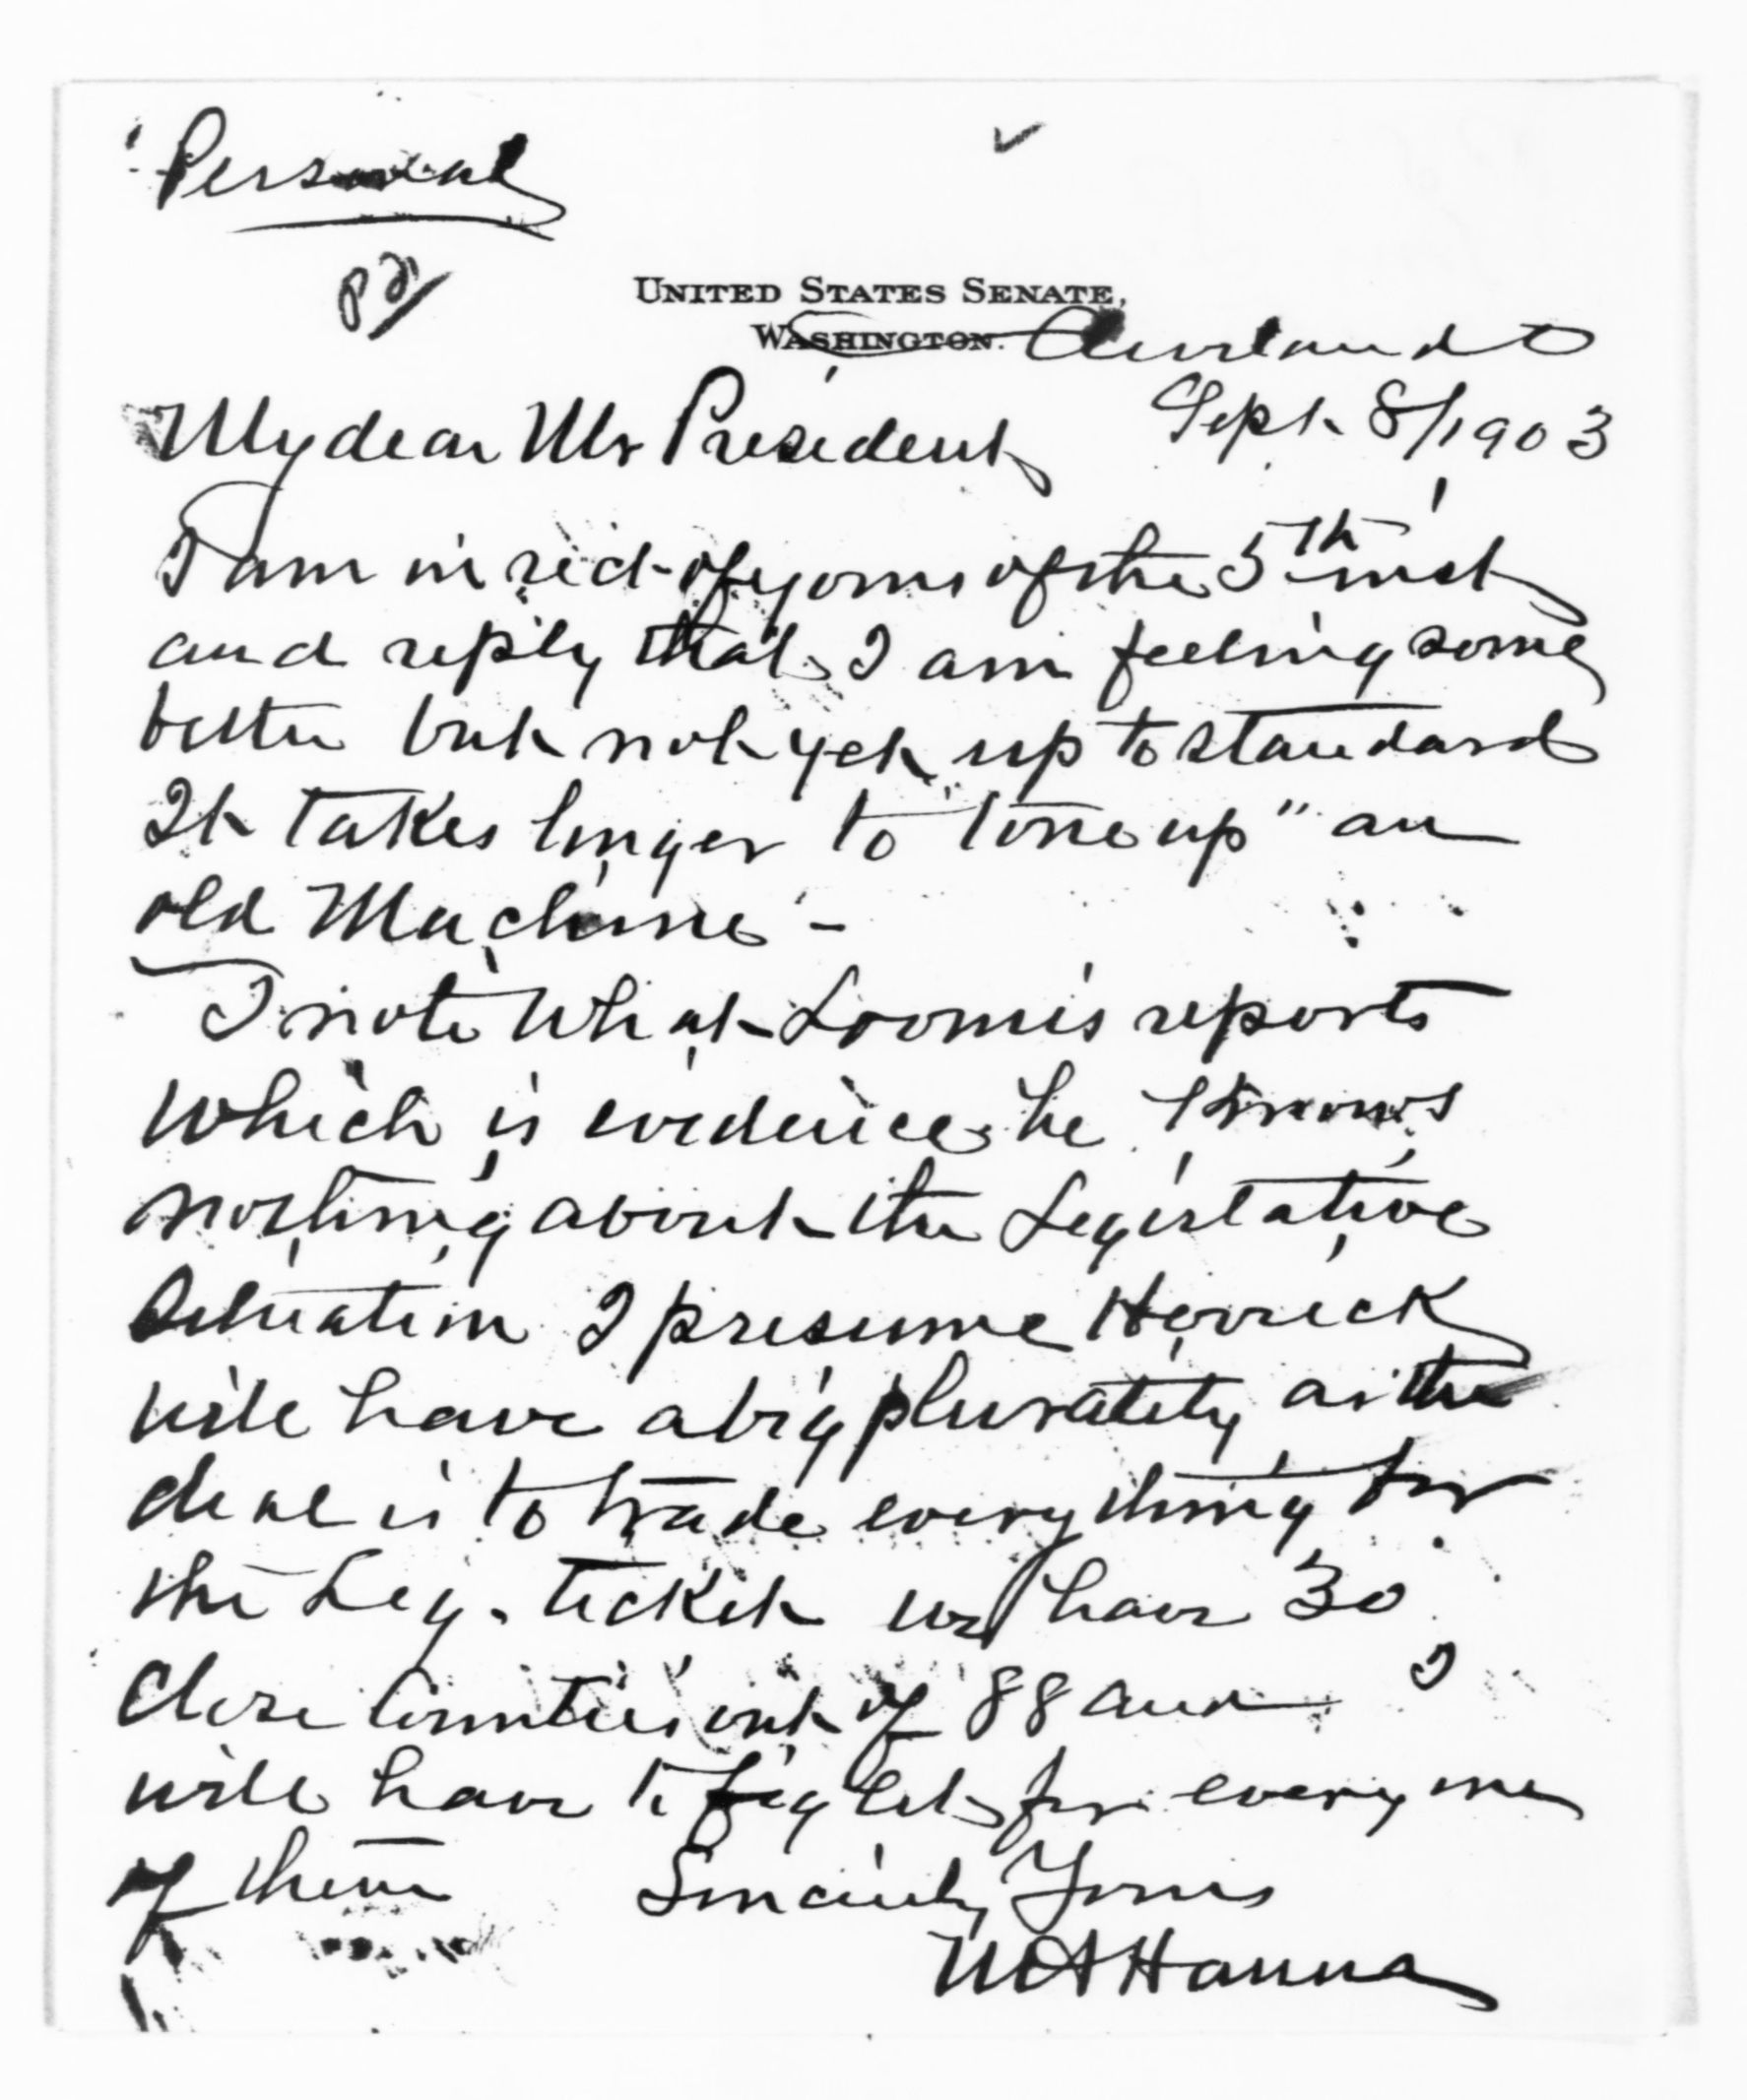 Personal
UNITED STATES SENATE,
WASHINGTON. Cleveland O
Sept 8/1903
My dear Mr President
I am in rec't of yours of the 5th inst
and reply that I am feeling some
better but not yet up to standard
It takes longer to "tone up" an
old Machine -
I note what Loomis reports
which is evidence he knows
nothing about the Legislative
Situation I presume Herrick
will have a big plurality as the
deal is to trade everything for
the Leg. ticket we have 30
close Counties out of 88 and I
will have to fight for every one
of them Sincerely Yours
M A Hanna